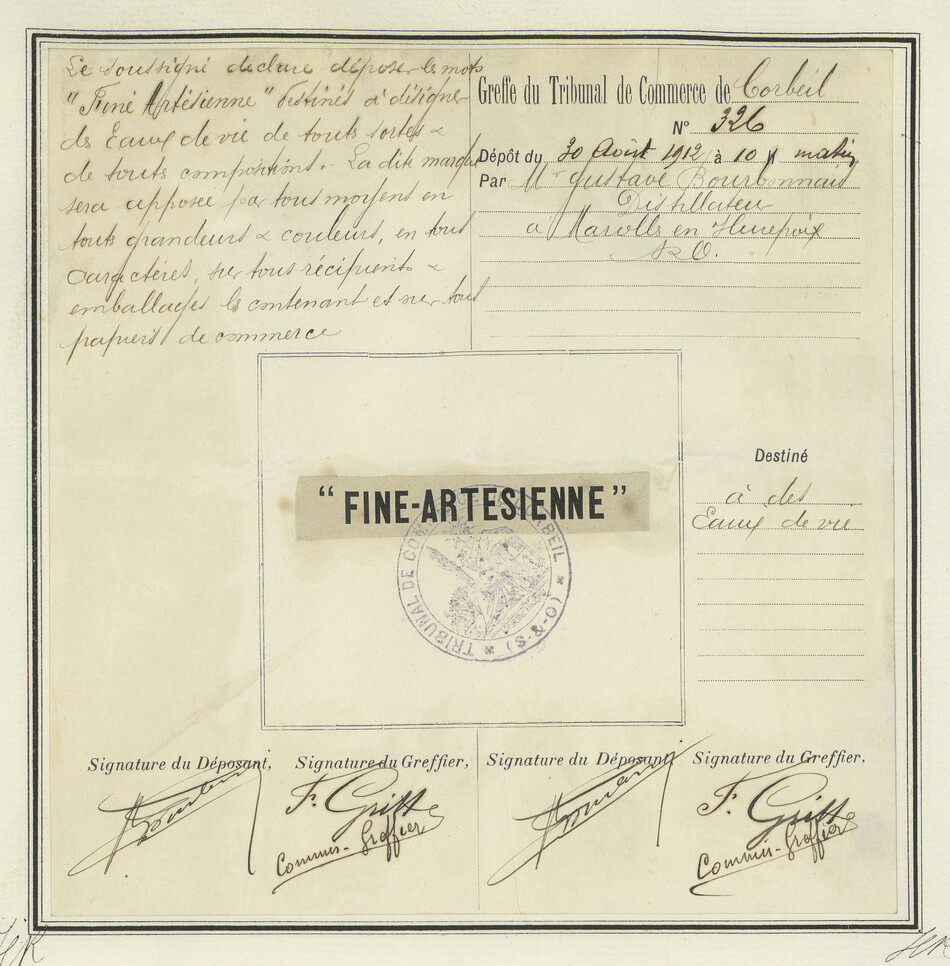 Le soussigné déclare déposer les mots
"Fine Artésienne" destinés à désigner
des Eaux de vie de toutes sortes &
de toutes compositions. La dite marque
sera apposée par tous moyens en
toutes grandeurs & couleurs, en tous
caractères, sur tous récipients &
emballages les contenant et sur tous
papiers de commerce
Greffe du Tribunal de Commerce de Corbeil
N° 326
Dépôt du 30 Août 1912 à 10 h matin
Par Mr Gustave Bourbonnais
Distillateur
à Marolles en Hurepoix
S & O.
"FINE-ARTESIENNE"
TRIBUNAL DE COMMERCE DE CORBEIL * (S-&-O) *
Destiné
à des
Eaux de vie
Signature du Déposant, Signature du Greffier, Signature du Déposant, Signature du Greffier,
F. Commis-Greffier
F. Commis-Greffier